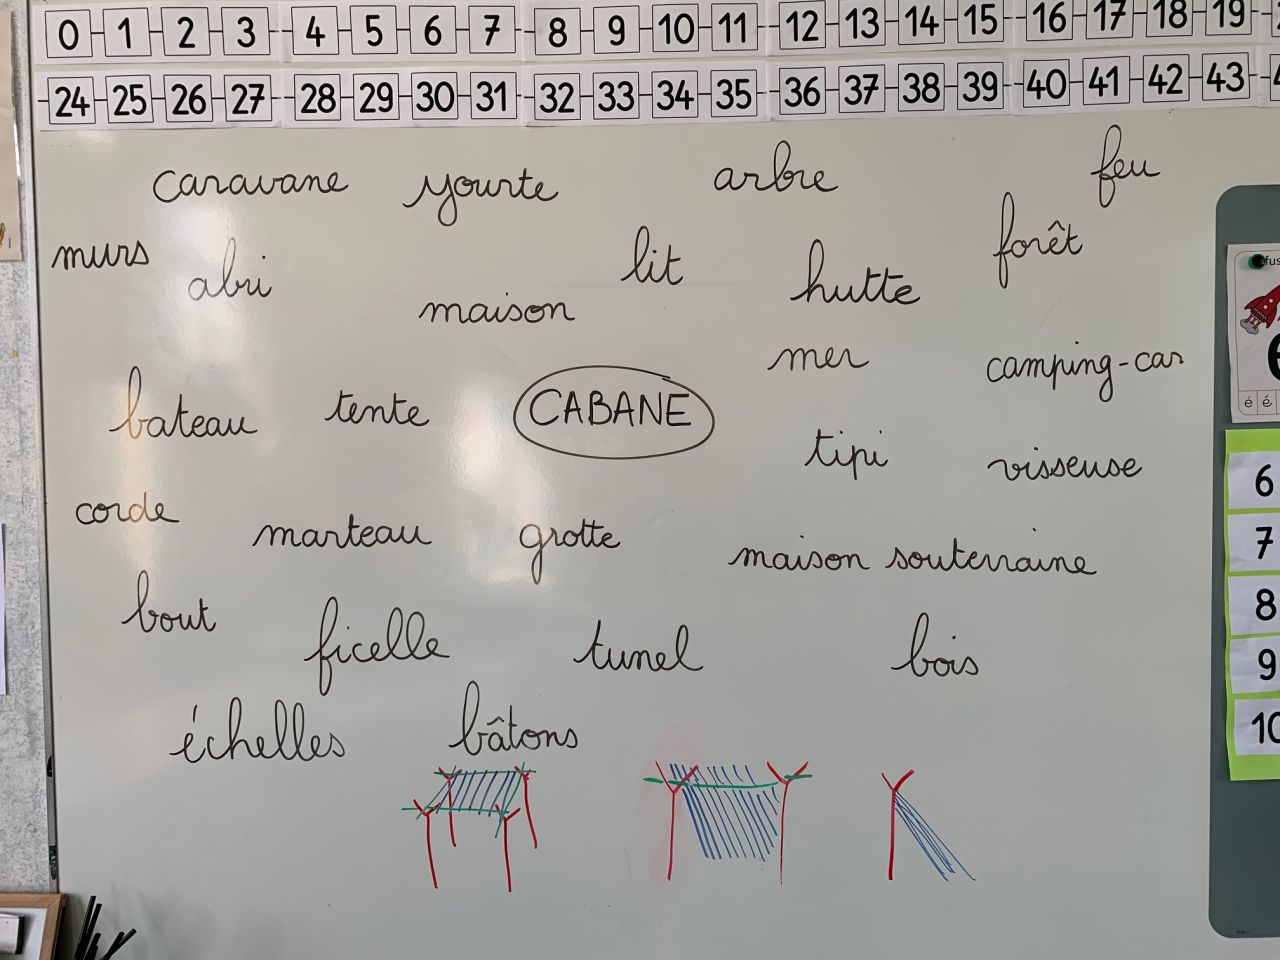 0 1 2 3 4 5 6 7 8 9 10 11 12 13 14 15 16 17 18 19
24 25 26 27 28 29 30 31 32 33 34 35 36 37 38 39 40 41 42 43
caravane yourte arbre feu
murs abri lit hutte forêt
maison
mer camping-car
bateau tente CABANE
tipi visseuse
corde marteau grotte maison souterraine
bout ficelle tunel bois
échelles bâtons
é é
6
7
8
9
10